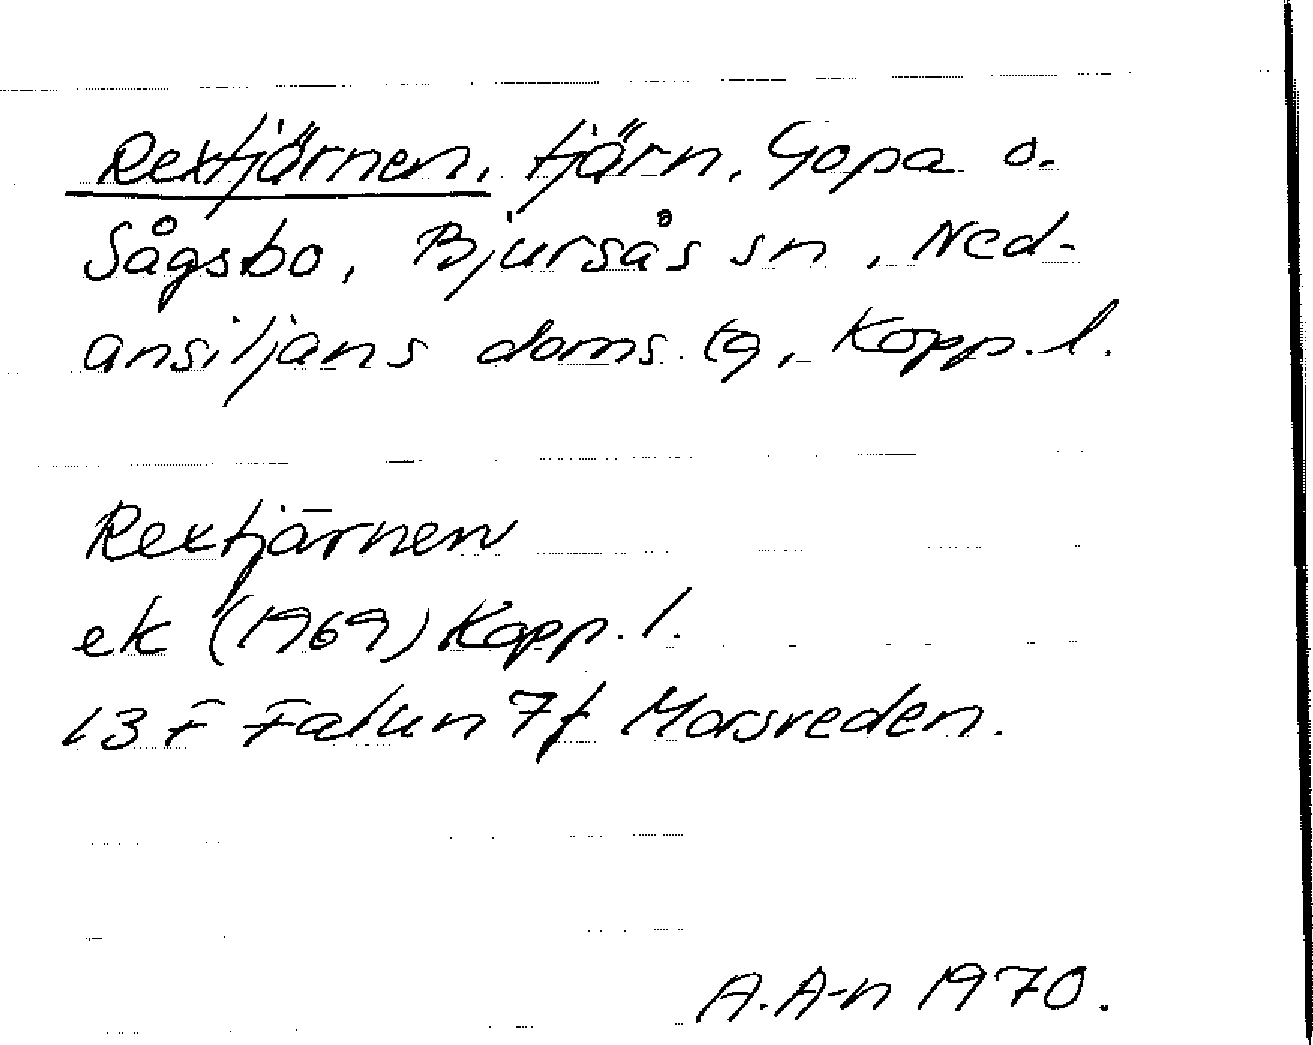 Rextjärnen, tjärn, Gopa o.
Sågsbo, Bjursås sn, Ned-
ansiljans doms. tg, Kopp. l.
Rextjärnen
ek (1969) Kopp. l.
13 F Falun 7f Morsveden.
A. A-n 1970.